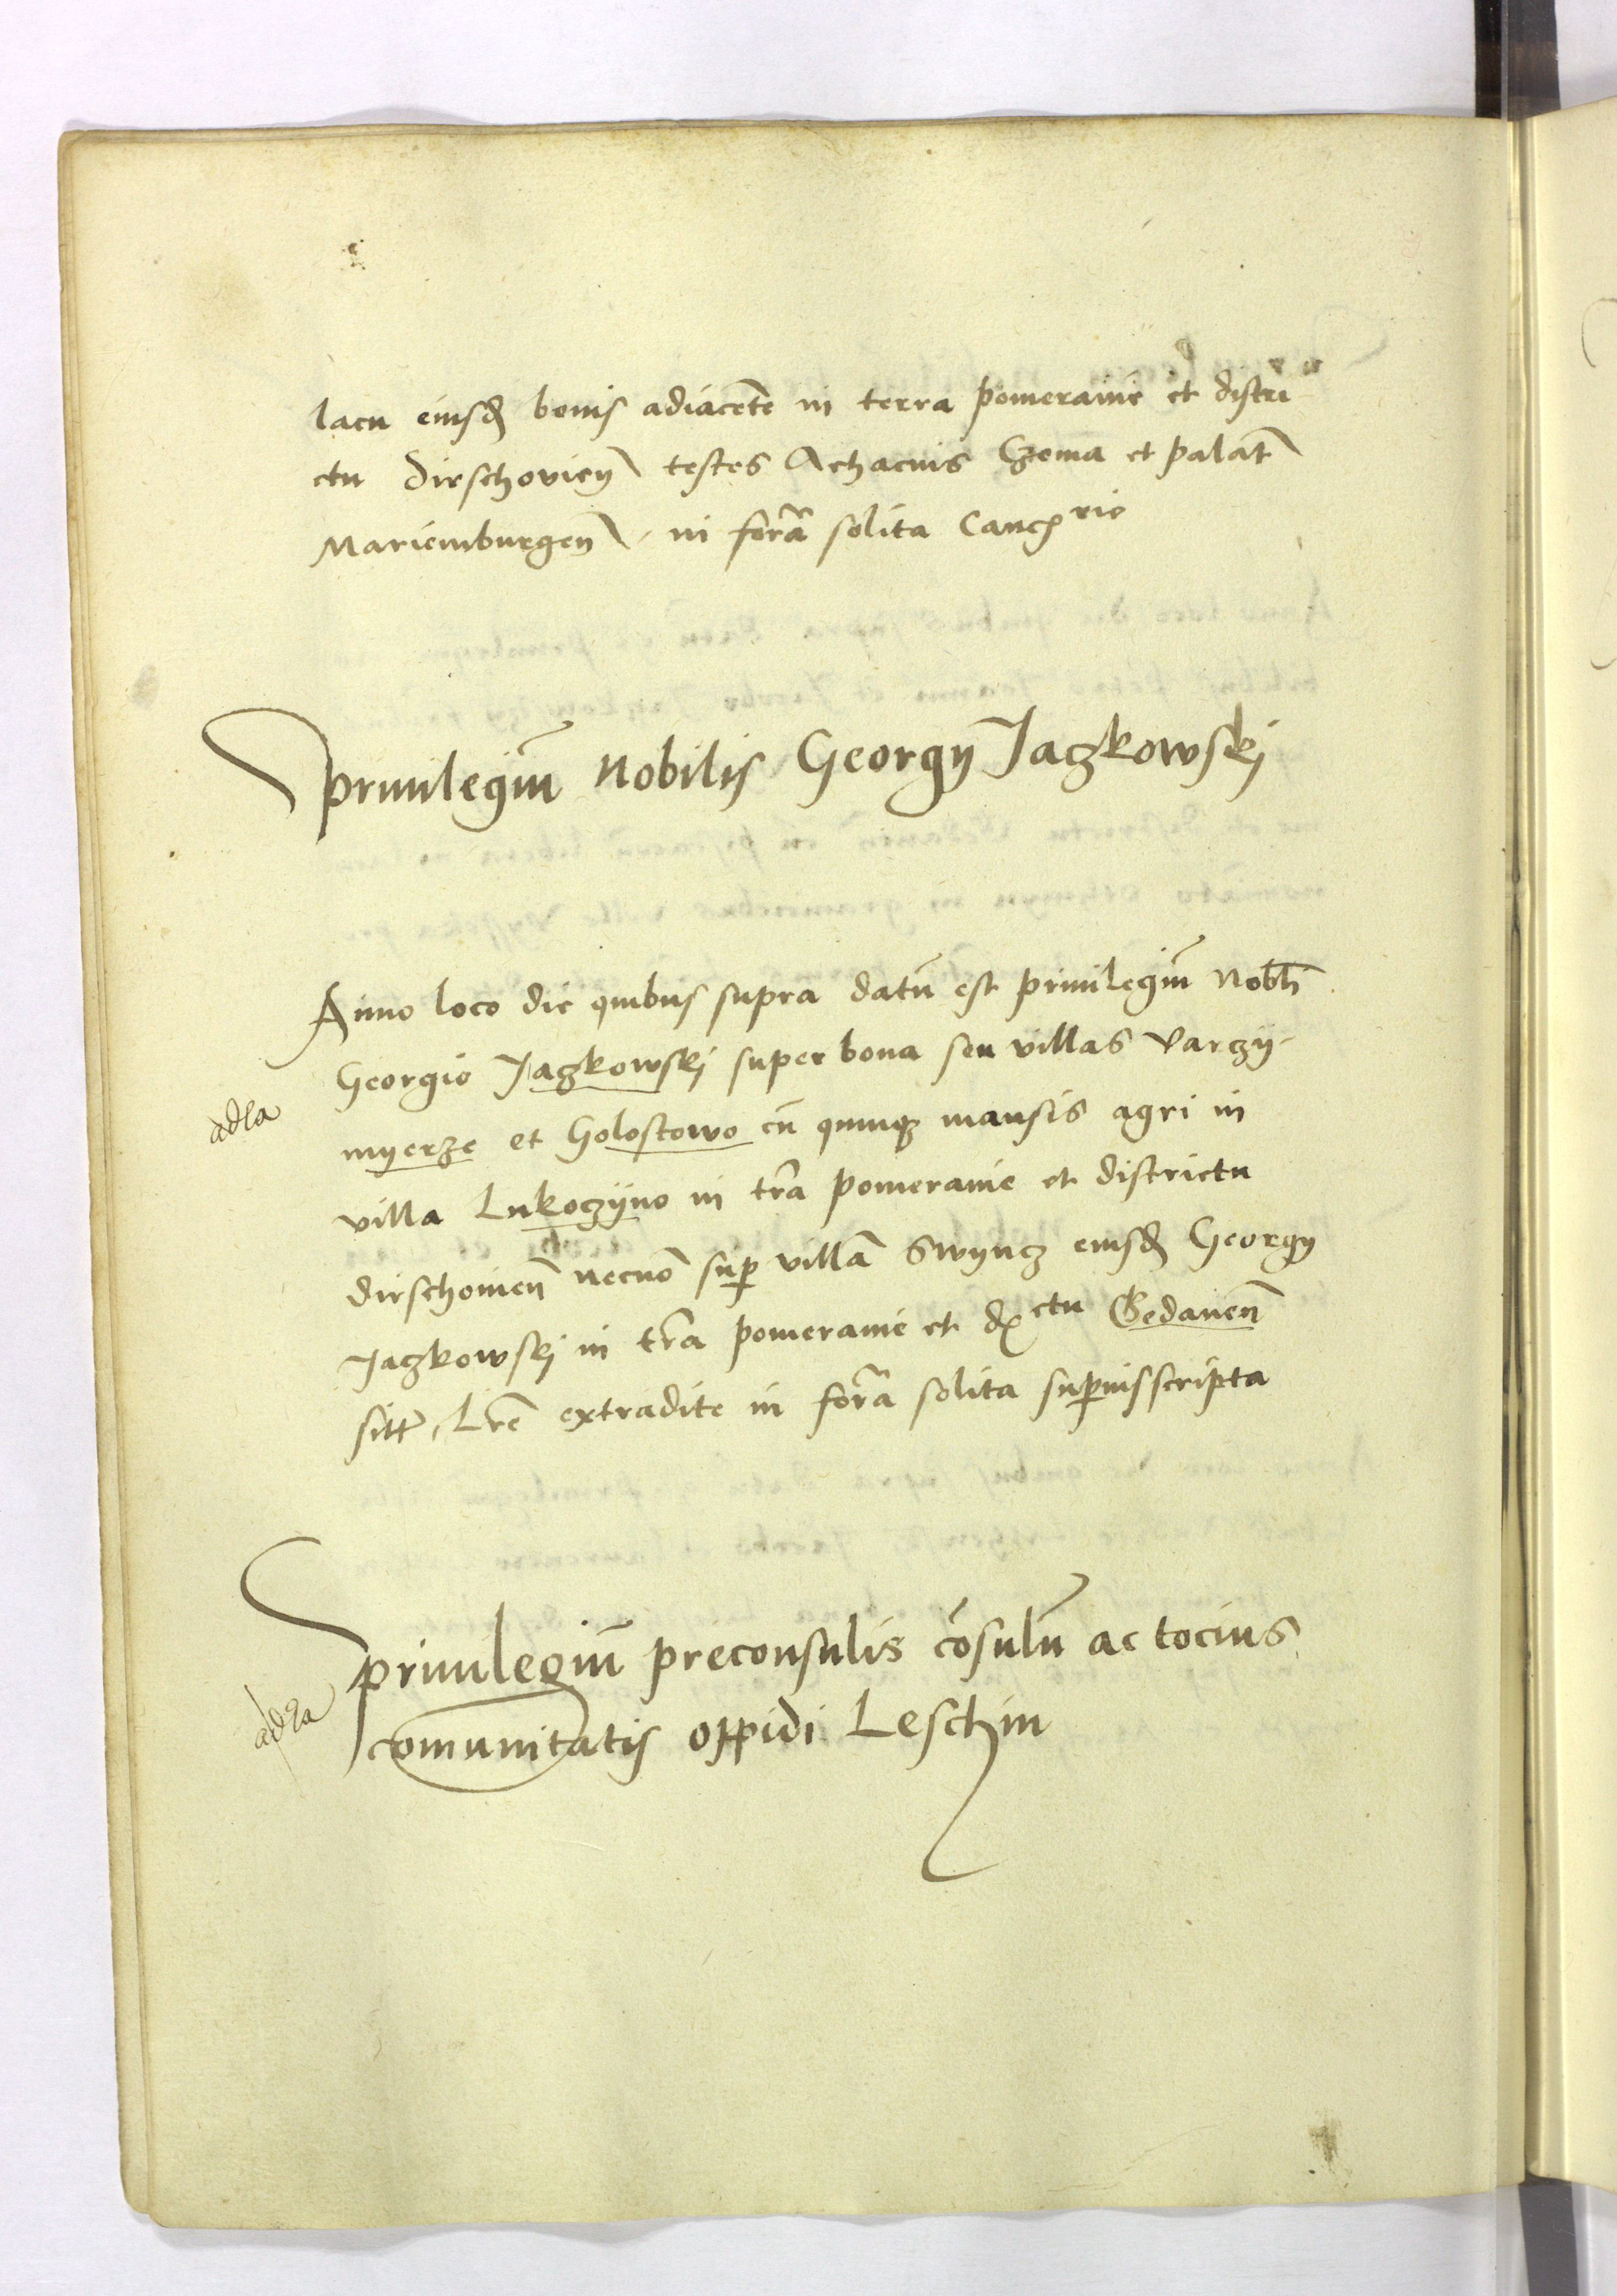 lacu eiusd bonis adiacẽte in terra pomeranie et distri
ctu Dirschovień testes Achacius Czema et palat̃
Mariemburgeñ in forã solita Canc rie
Priuilegiũ Nobilis Georgÿ Jaczkowskj
Anno loco die quibus supra datũ est priuilegiũ Nobli
Georgio Jaczkowskj super bona seu villas Varczÿ-
mÿerze et Golostowo cũ quinqʒ mansis agri in
villa Lukoczÿno in trã pomeranie et districtu
dirschouieñ necnõ sup villã Swÿncz eiusd Georgÿ
Jaczkowskj in trã pomeranie et d ctu Gedaneñ
sitã, Lrẽ extradite in forã solita supius scripta
adla
Priuilegiũ preconsulis cõsulũ ac tocius
comunitatis oppidi Leschin
adla